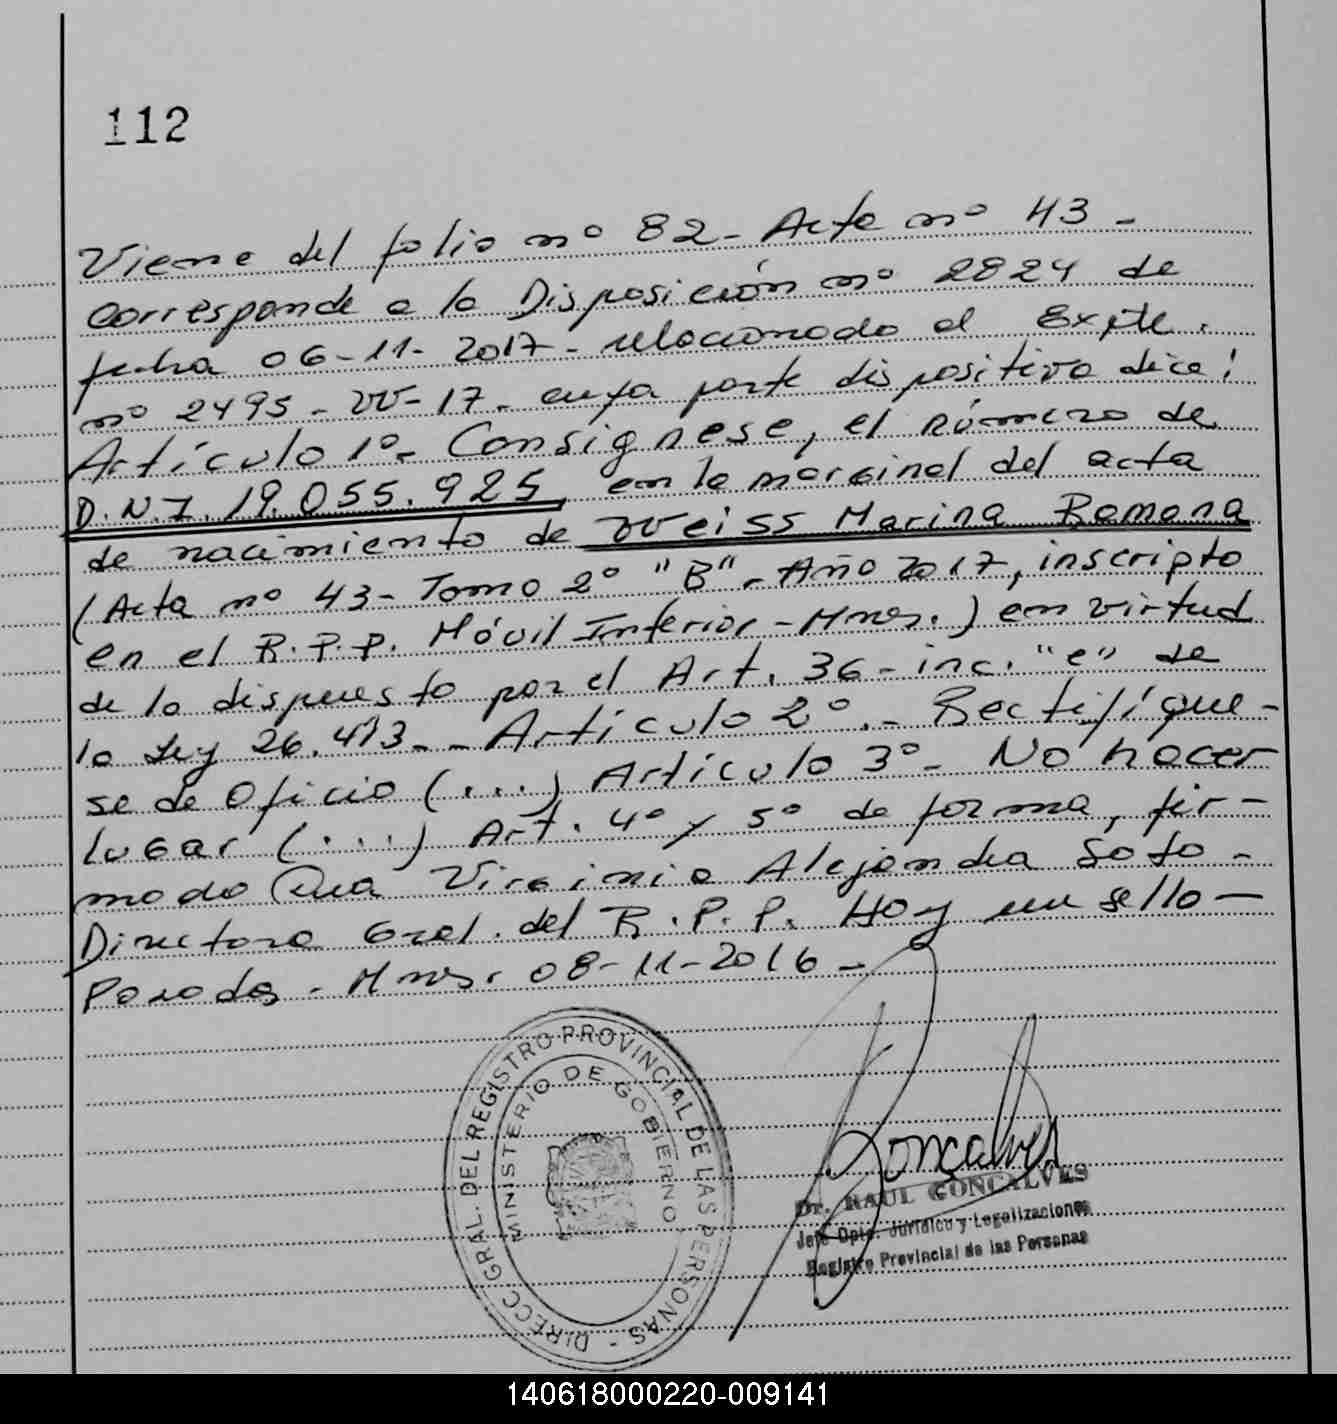 112
Viene del folio nº 82 - Acta nº 43 -
corresponde a la Disposición nº 2824 de
fecha 06-11-2017 - relacionado al Expte.
nº 2495 - W - 17 - cuya parte dispositiva dice:
Artículo 1º - Consignese, el número de
D.N.I. 19.055.925 en la marginal del acta
de nacimiento de Weiss Marina Ramona
(Acta nº 43 - Tomo 2º "B" - Año 2017, inscripto
en el R.P.P. Móvil Interior - Mnes.) en virtud
de lo dispuesto por el Art. 36 - inc. "e" de
la Ley 26.413 - - Artículo 2º. - Rectifíque-
se de Oficio (...) Artículo 3º - No hacer
lugar (...) Art. 4º y 5º de forma, fir-
mado Dra Virginia Alejandra Soto -
Directora Gral. del R.P.P. Hoy un sello -
Posadas - Mnes. 08-11-2016 -
DIRECC GRAL. DEL REGISTRO PROVINCIAL DE LAS PERSONAS -
MINISTERIO DE GOBIERNO
Goncalves
Dr. RAUL GONCALVES
Jefe Dpto. Jurídico y Legalizaciones
Registro Provincial de las Personas
140618000220-009141